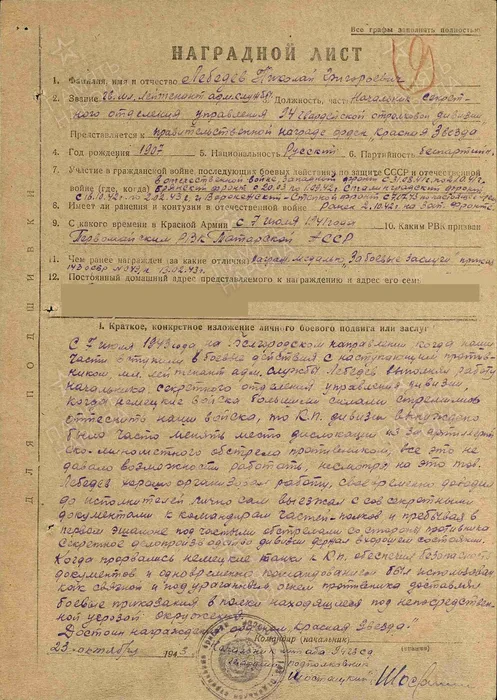 Все графы заполнять полностью
НАГРАДНОЙ ЛИСТ
1. Фамилия, имя и отчество Лебедев Николай Григорьевич
2. Звание Гв. мл. лейтенант адм. службы Должность, часть Начальник секрет-
ного отделения управления 94 гвардейской стрелковой дивизии
Представляется к правительственной награде орден Красная Звезда
4. Год рождения 1907 5. Национальность Русский 6. Партийность Беспартийн.
7. Участие в гражданской войне последующих боевых действиях по защите СССР и отечественной
в отечественной войне, Западный фронт с
войне (где, когда) Брянский фронт с 20.03 по 1.09.42г. Сталинградский фронт
с 16.10.42г. по 2.02.43г.
8. Имеет ли ранения и контузии в отечественной войне. Ранен 2.10.42г на Зап. Фронте
9. С какого времени в Красной Армии с 7 июля 1941 года 10. Каким РВК призван
Первомайским РВК Татарской АССР
11. Чем ранее награжден (за какие отличия) награж. медалью „За боевые заслуги" приказ
143 ОБР №343/н 13.02.43г.
12. Постоянный домашний адрес представляемого к награждению и адрес его семьи:
I. Краткое, конкретное изложение личного боевого подвига или заслуг
С 7 июля 1943 года на Белгородском направлении когда наши
части вступили в боевые действия с наступающим против-
ником мл. лейтенант адм. службы Лебедев выполнял работу
начальника секретного отделения управления дивизии,
когда немецкие войска большими силами стремились
оттеснить наши войска, то К.П. дивизии вынуждено
было часто менять место дислокации из за артиллерий-
ско-минометного обстрела противником, все это не
давало возможности работать, несмотря на это тов.
Лебедев хорошо организовал работу, своевременно доводил
до исполнителей лично сам выезжал с сов.секретными
документами к командирам частей-полков и пребывая в
первом эшелоне под частыми обстрелами со стороны противника
Секретное делопроизводство дивизии держал в хорошем состоянии.
Когда прорвались немецкие танки к К.П. обеспечил безопасность
документов и одновременно командованием был использован
как связной и под ураганным огнем противника доставлял
боевые приказания в полки находящиеся под непосредствен-
ной угрозой окружения.
Достоин награждения орденом „Красная Звезда."
Командир (начальник)
23 октября 1943 г. Начальник штаба 94 гв сд
гвардии подполковник
(подпись)
ДЛЯ ПОДШИВКИ